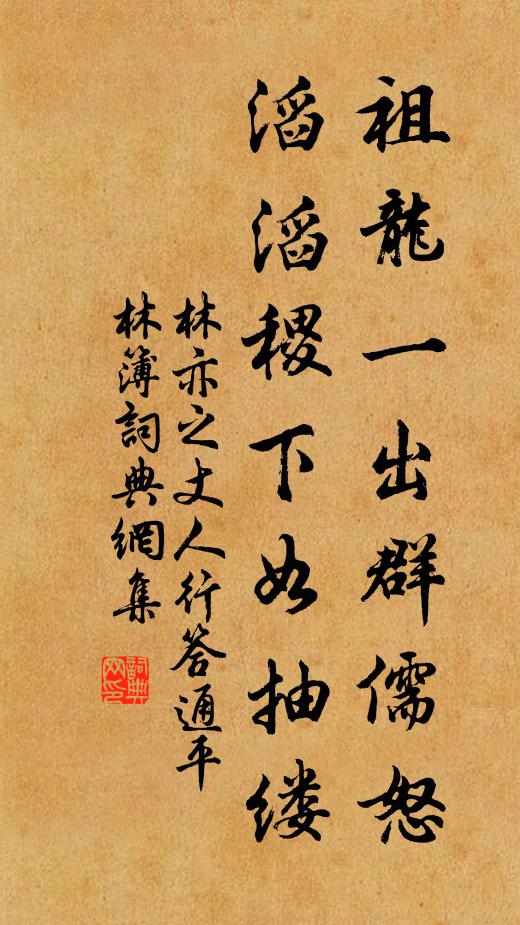 祖龍一出群儒怒
滔滔稷下如抽缕
林亦之丈人行答通平
林簿詞典網集
詞典網印